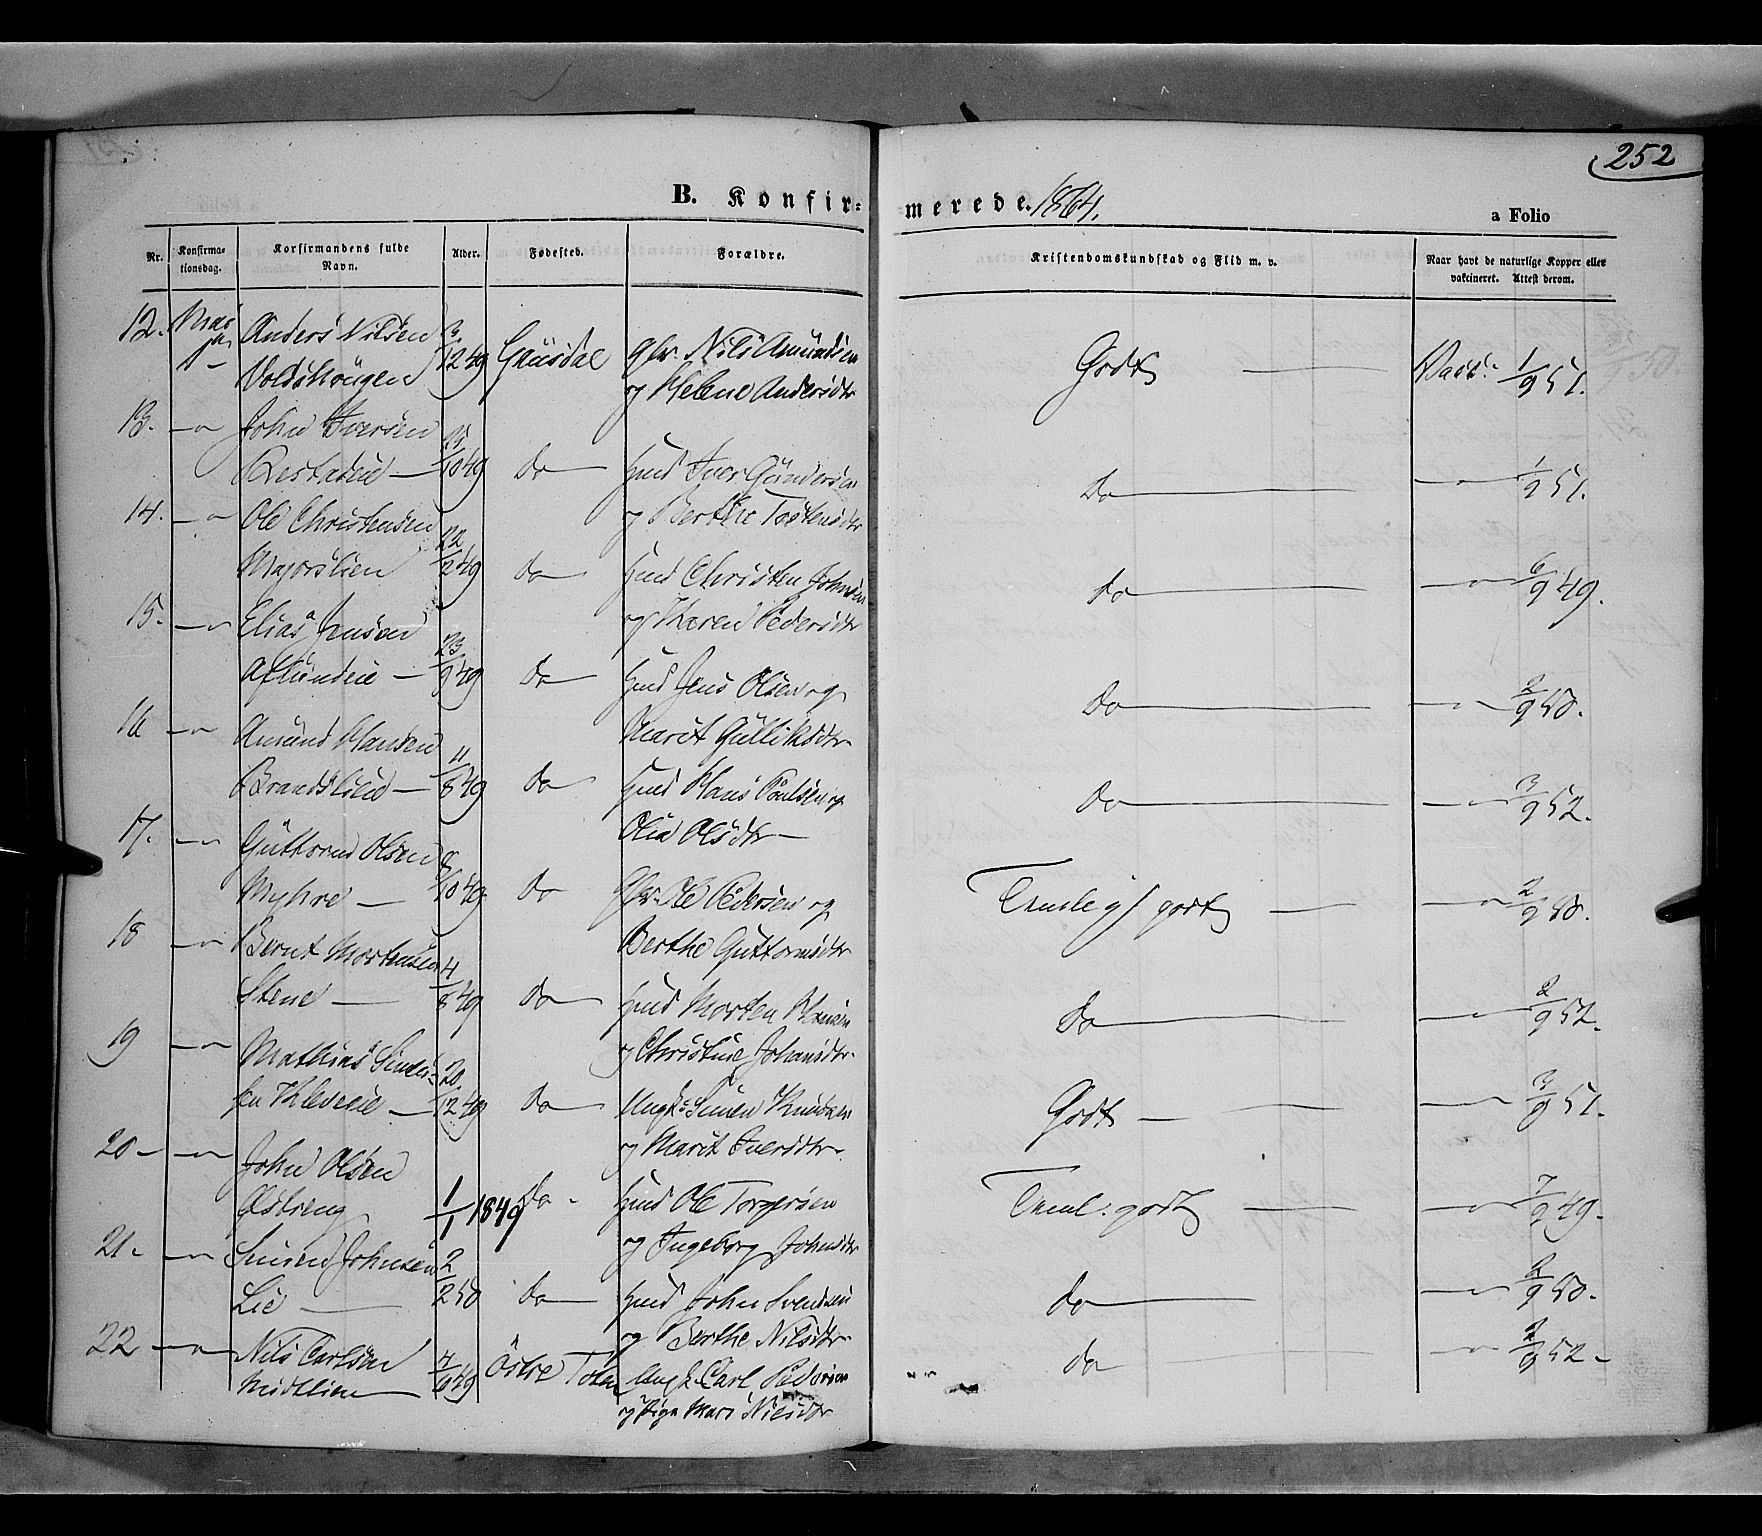 252
B. Konfirmerede. 1864.
a Folio
Nr. Konfirmationsdag. Konfirmandens fulde Navn. Alder. Fødested. Forældre. Kristendomskundskab og Flid m. v. Naar havt de naturlige Kopper eller vakcineret. Attest derom.
12. Anders Nilsen 3/12 49 Gausdal Gbr. Nils Amundsen Godt — Vacc: 1/9 51.
og Helene Andersdtr
13. —"— John Iversen 25/10 49 do Husmd Iver Gundersen do — —"— 1/9 51.
og Berthe Tostensdtr
14. —"— Ole Christensen 22/12 49 do Husmd Christen Johnsen do — —"— 6/9 49.
Majorslien og Karen Pedersdtr
15. —"— Elias Jensen 23/9 49 do Husmd Jens Olsen og do — —"— 2/9 50.
Marit Gulliksdtr
16 —"— Amund Hansen 11/8 49 do Husmd Hans Poulsen og do — —"— 3/9 52.
Brandslien — Olia Olsdtr —
17. —"— Guttorm Olsen 8/10 49 do Gbr. Ole Pedersen og Temlig godt — —"— 2/9 50.
Myhre — Berthe Guttormsdtr
18 —"— Bernt Mortensen 4/8 49 do Husmd Morten Hansen do — —"— 2/9 52.
Stene — og Christine Johansdtr
19 —"— Mathias Simensen 20/12 49 do Ungk: Simen Knudsen Godt — —"— 3/9 51.
og Marit Iversdtr
20 —"— John Olsen 1/1 1849 do Husmd Ole Torgersen Teml: godt — —"— 7/9 49.
og Ingeborg Johnsdtr
21. —"— Simen Johnsen 2/2 50 do Husmd John Svendsen do — —"— 2/9 50.
Lie — og Berthe Nilsdtr
22 —"— Nils Carlsen 4/9 49 Östre Toten Ungk. Carl Pedersen do —"— 2/9 52
Midtlien og Pige Mari Nilsdtr